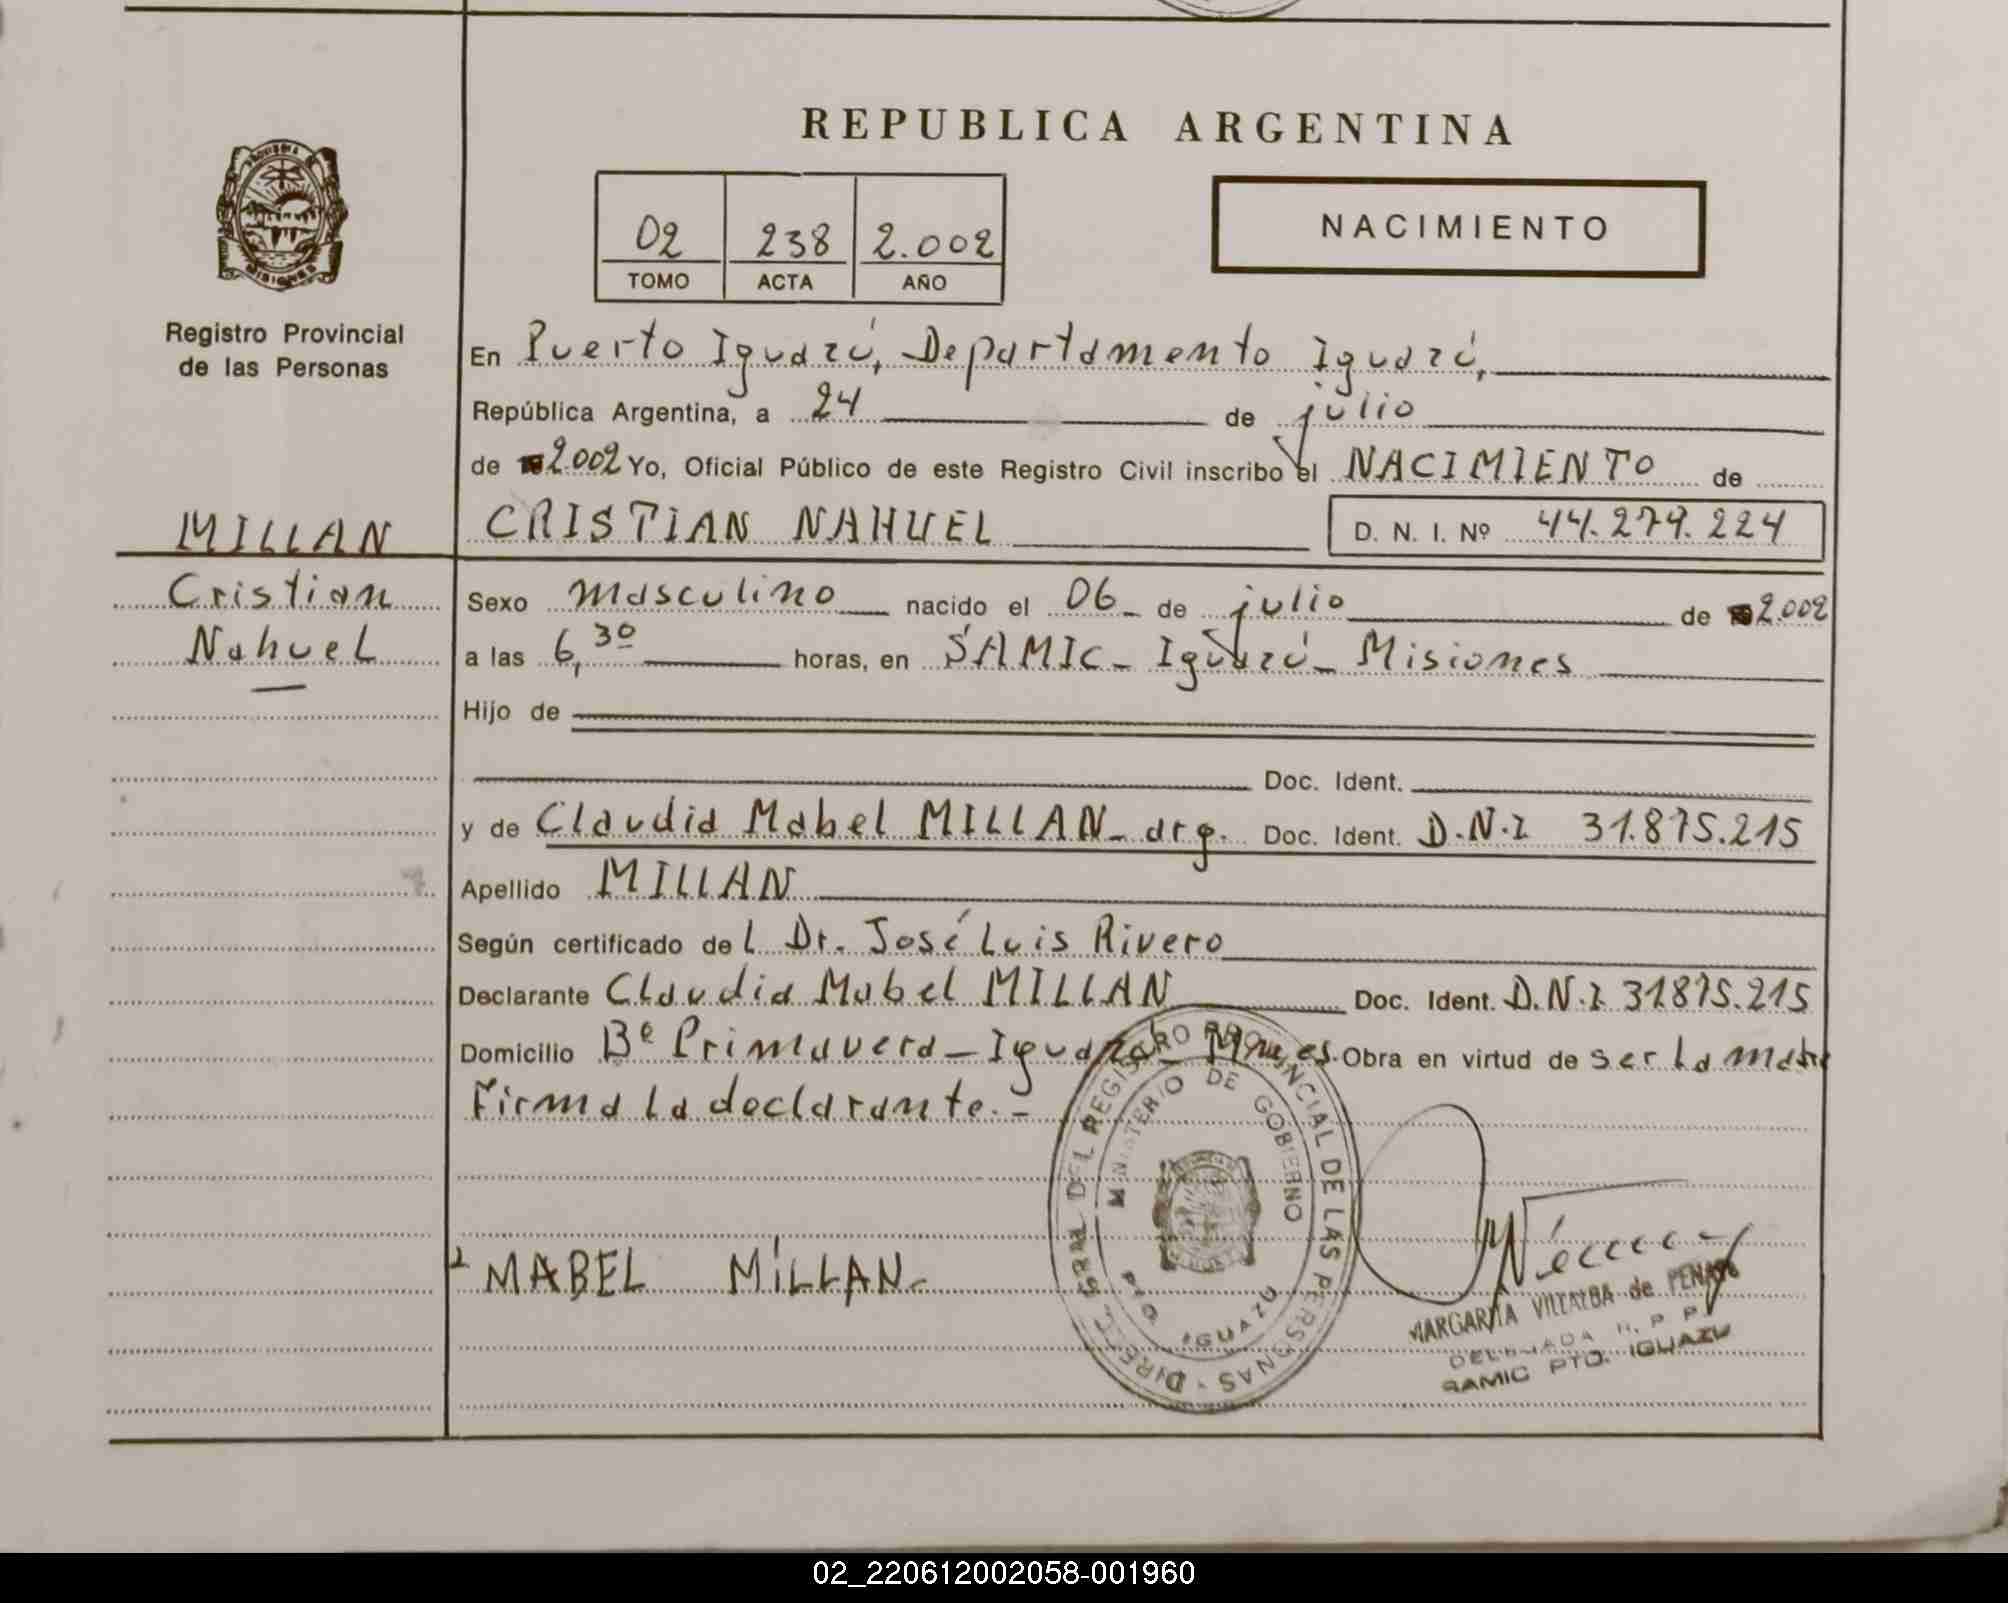 REPUBLICA ARGENTINA
PROVINCIA DE
MISIONES
Registro Provincial
de las Personas
02 238 2.002
TOMO ACTA AÑO
NACIMIENTO
En Puerto Iguazú, Departamento Iguazú,
República Argentina, a 24 de julio
de 2.002 Yo, Oficial Público de este Registro Civil inscribo el NACIMIENTO de
MILLAN CRISTIAN NAHUEL D. N. I. Nº 44.279.224
Cristian
Nahuel
Sexo masculino nacido el 06 de julio de 2.002
a las 6,30 horas, en SAMIC - Iguazú - Misiones
Hijo de
Doc. Ident.
y de Claudia Mabel MILLAN - arg. Doc. Ident. D.N.I 31.875.215
Apellido MILLAN
Según certificado del Dr. José Luis Rivero
Declarante Claudia Mabel MILLAN Doc. Ident. D.N.I. 31.875.215
Domicilio Bº Primavera - Iguazú - Mnes. Obra en virtud de ser la madre
Firma la declarante.-
MABEL MiLLAN
DIRECC. GRAL DEL REGISTRO PROVINCIAL DE LAS PERSONAS -
MINISTERIO DE GOBIERNO
PTO. IGUAZU
MARGARITA VILLALBA de
DELEGADA R. P. P.
SAMIC PTO. IGUAZU
02_220612002058-001960